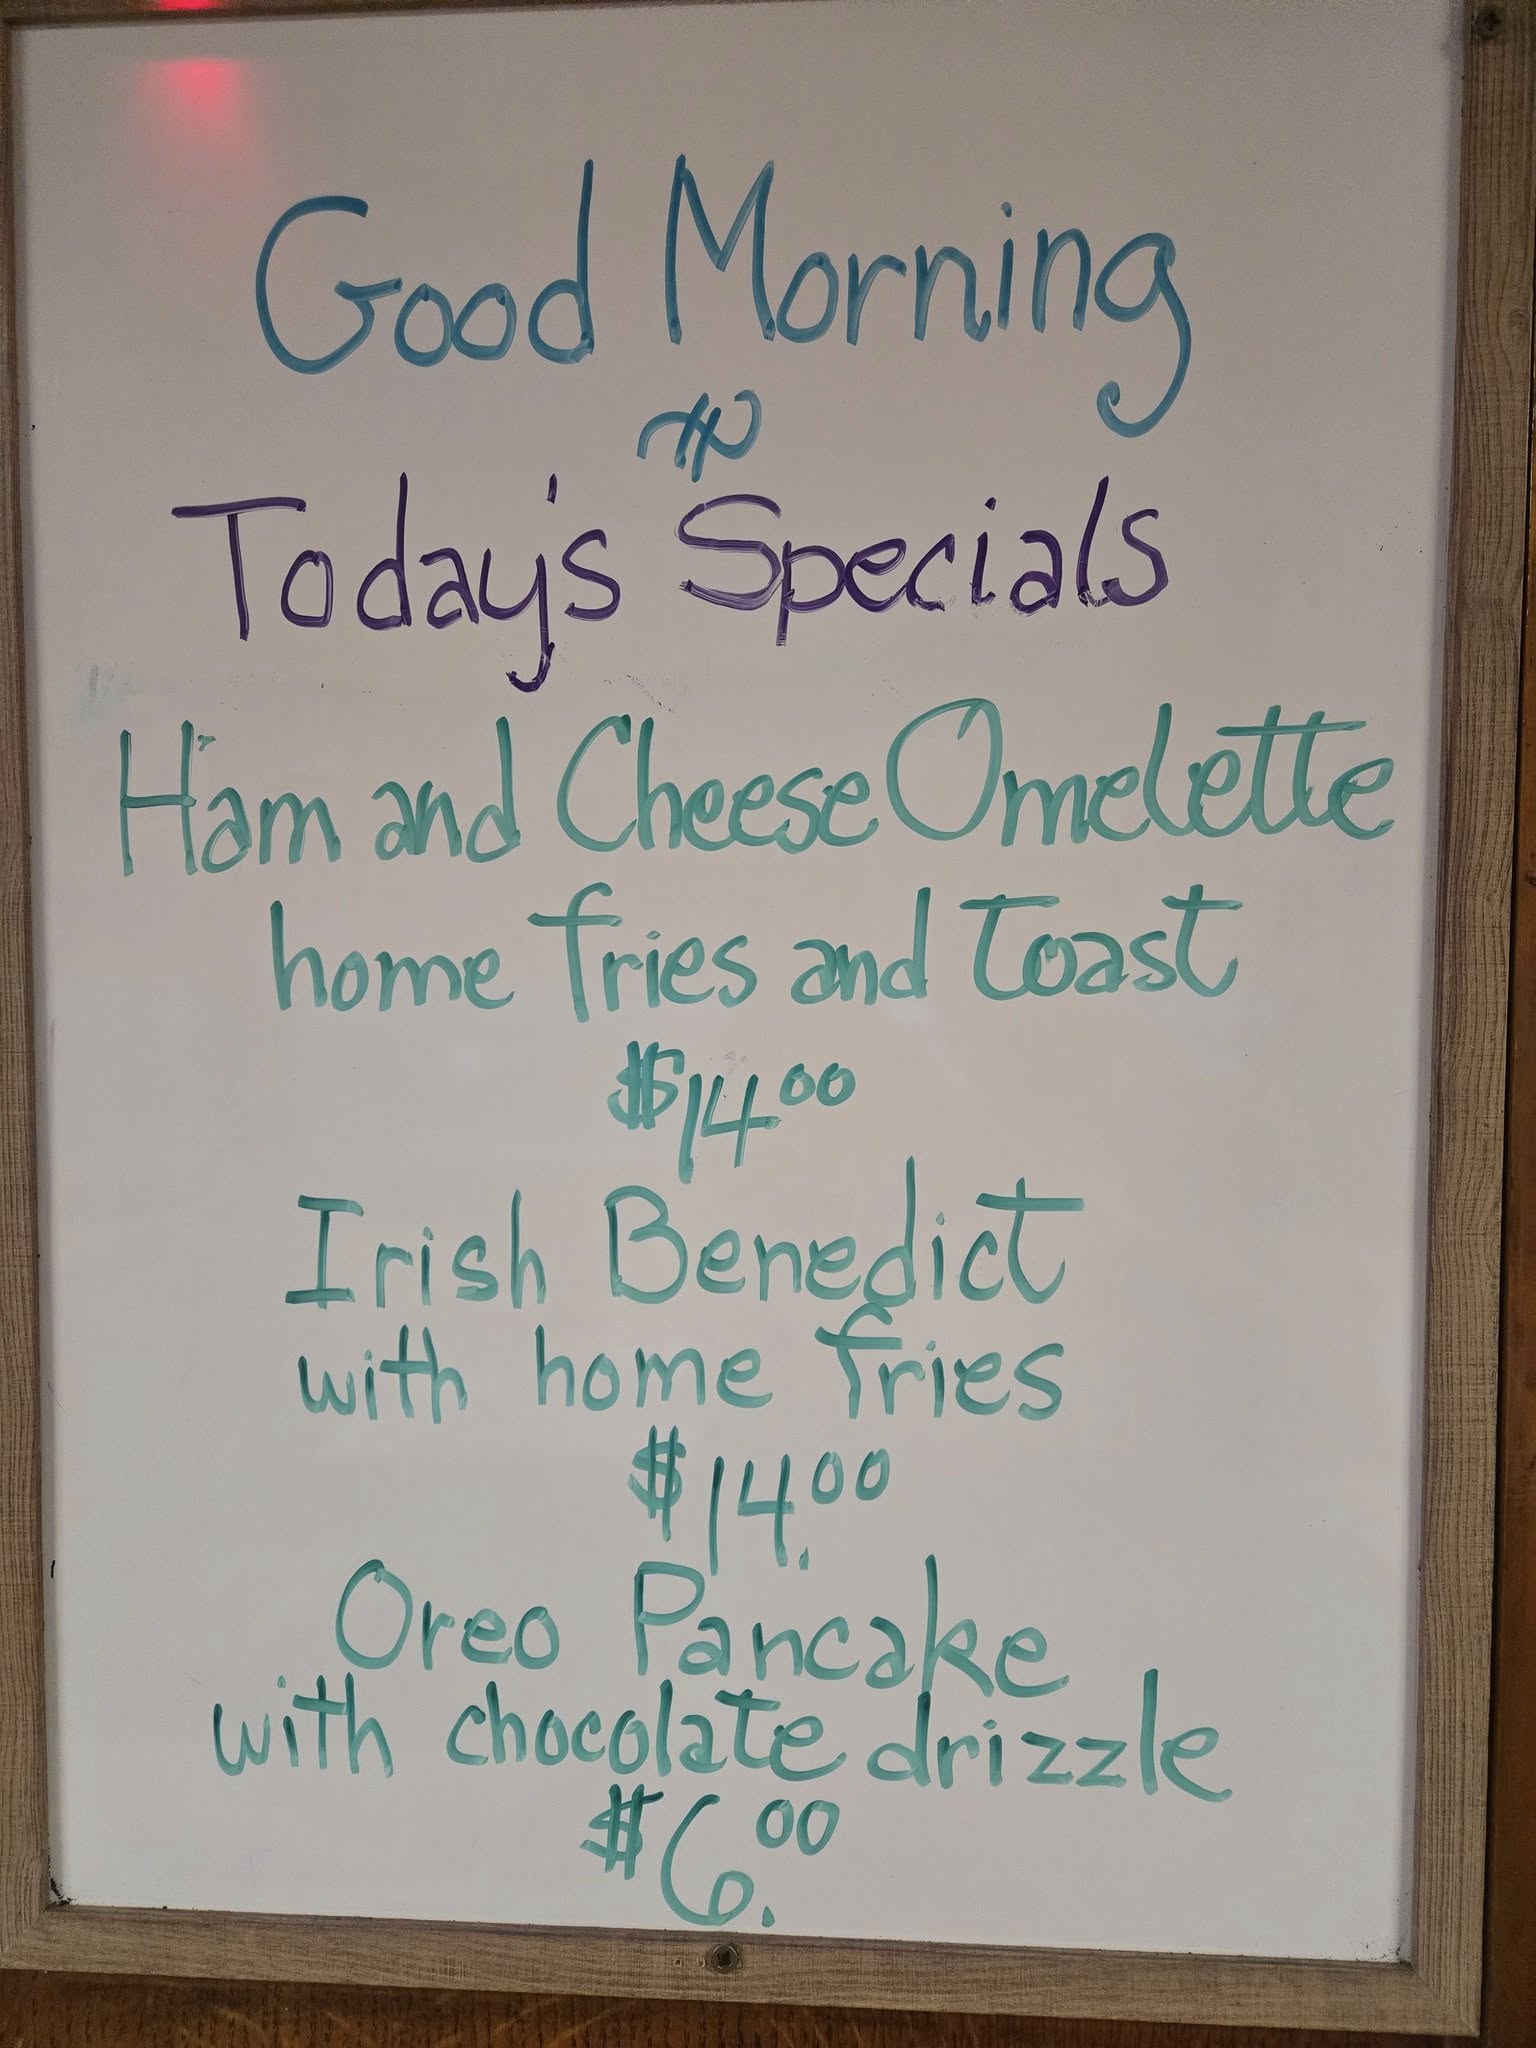 Good Morning
Today's Specials
Ham and Cheese Omelette
home fries and toast
$14.00
Irish Benedict
with home fries
$14.00
Oreo Pancake
with chocolate drizzle
$6.00